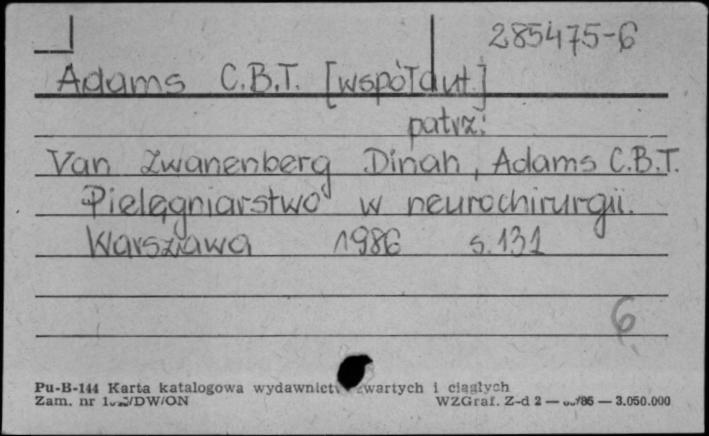 285475-6
Adams C.B.T. [współaut.]
patrz:
Van Zwanenberg Dinah, Adams C.B.T.
Pielęgniarstwo w neurochirurgii.
Warszawa 1986 s. 131
6
Pu-B-144 Karta katalogowa wydawnictw zwartych i ciągłych
Zam. nr WZGraf. Z-d 2 — — 3.050.000